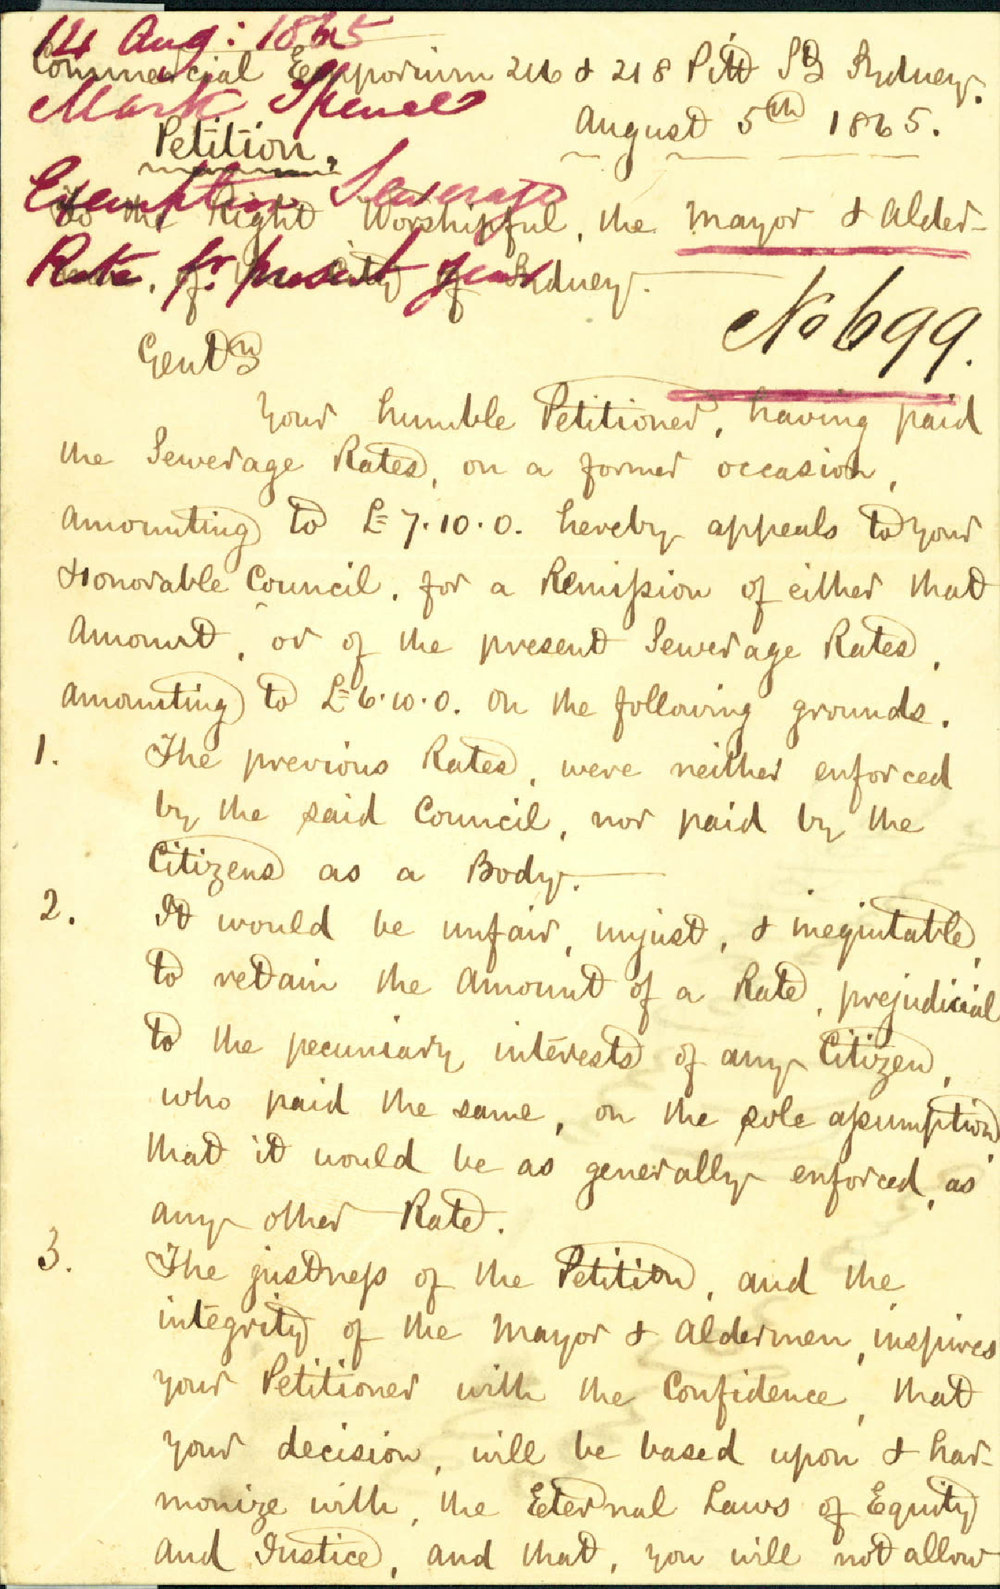 14 Aug: 1865
Commercial Epporium 216 & 218 Pitt St Sydney.
Mark Spence
Petition.
August 5th 1865.
Exemption Sewerage
To the Right Worshipful, the Mayor & Alder-
Rate, for present year
of the City of Sydney.
No 699.
Gentn
Your humble Petitioner, having paid
the Sewerage Rates, on a former occasion,
amounting to £7.10.0. hereby appeals to your
Honorable Council, for a Remission of either that
Amount, or of the present Sewerage Rates,
amounting to £6.10.0. on the following grounds.
1. The previous Rates, were neither enforced
by the said Council, nor paid by the
Citizens as a Body.
2. It would be unfair, unjust, & inequitable,
to retain the Amount of a Rate, prejudicial
to the pecuniary interests of any Citizen,
who paid the same, on the sole assumption,
that it would be as generally enforced, as
any other Rate.
3. The justness of the Petition, and the
integrity of the Mayor & Aldermen, inspires
your Petitioner with the Confidence, that
your decision, will be based upon & har-
monize with, the Eternal Laws of Equity
and Justice, and that, you will not allow